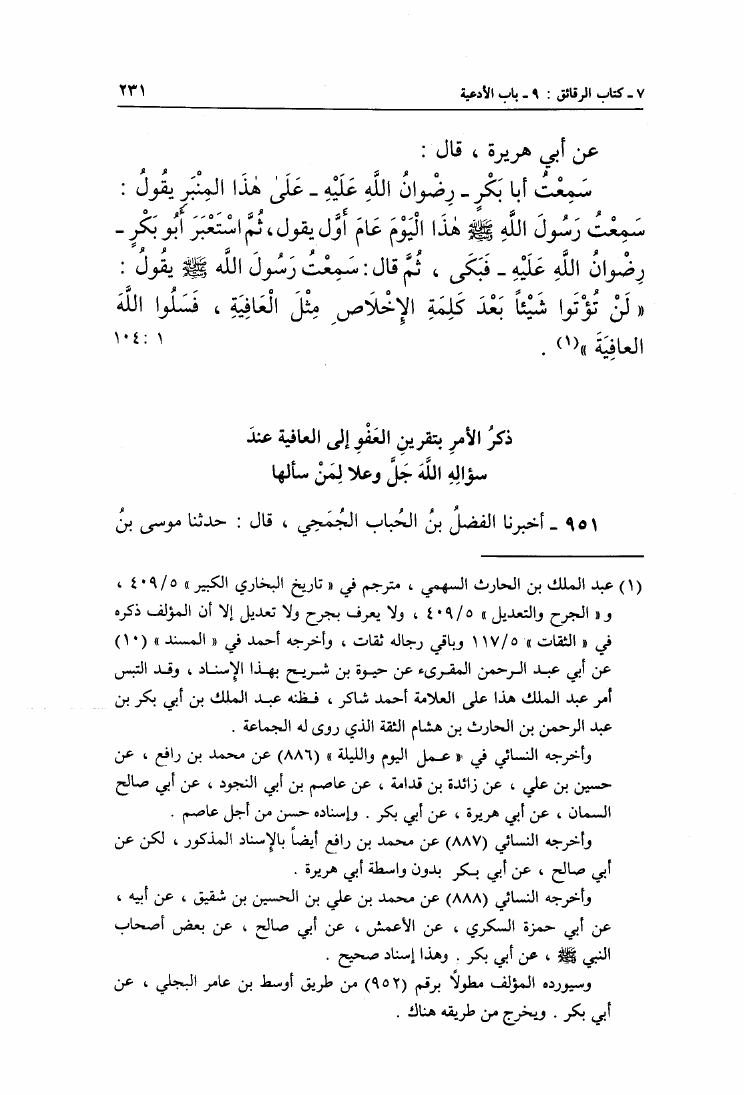 ٧ ـ كتاب الرقائق : ٩ ـ باب الأدعية ٢٣١
عن أبي هريرة ، قال :
سَمِعْتُ أبا بَكْرٍ ـ رِضْوانُ اللَّهِ عَلَيْهِ ـ عَلَىٰ هٰذَا المِنْبَرِ يقُولُ :
سَمِعْتُ رَسُولَ اللَّهِ ﷺ هٰذَا الْيَوْمَ عَامَ أَوَّل يقول، ثُمَّ اسْتَعْبَرَ أَبُو بَكْرٍ ـ
رِضْوانُ اللَّهِ عَلَيْهِ ـ فَبَكَى ، ثُمَّ قال : سَمِعْتُ رَسُولَ اللَّه ﷺ يقُولُ :
« لَنْ تُؤْتَوا شَيْئاً بَعْدَ كَلِمَةِ الإِخْلَاصِ مِثْلَ الْعَافِيَةِ ، فَسَلُوا اللَّهَ
العافِيَةَ »(١) . ١ :١٠٤
ذكرُ الأمرِ بتقرينِ العَفْوِ إلى العافية عندَ
سؤالِهِ اللَّهَ جَلَّ وعلا لِمَنْ سألها
٩٥١ ـ أخبرنا الفضلُ بنُ الحُباب الجُمَحِي ، قال : حدثنا موسى بنُ
(١) عبد الملك بن الحارث السهمي ، مترجم في « تاريخ البخاري الكبير » ٤٠٩/٥ ،
و« الجرح والتعديل » ٤٠٩/٥ ، ولا يعرف بجرح ولا تعديل إلا أن المؤلف ذكره
في « الثقات » ١١٧/٥ وباقي رجاله ثقات ، وأخرجه أحمد في « المسند » (١٠)
عن أبي عبد الرحمن المقرىء عن حيوة بن شريح بهذا الإسناد ، وقد التبس
أمر عبد الملك هذا على العلامة أحمد شاكر ، فظنه عبد الملك بن أبي بكر بن
عبد الرحمن بن الحارث بن هشام الثقة الذي روى له الجماعة .
وأخرجه النسائي في « عمل اليوم والليلة » (٨٨٦) عن محمد بن رافع ، عن
حسين بن علي ، عن زائدة بن قدامة ، عن عاصم بن أبي النجود ، عن أبي صالح
السمان ، عن أبي هريرة ، عن أبي بكر . وإسناده حسن من أجل عاصم .
وأخرجه النسائي (٨٨٧) عن محمد بن رافع أيضاً بالإسناد المذكور ، لكن عن
أبي صالح ، عن أبي بكر بدون واسطة أبي هريرة .
وأخرجه النسائي (٨٨٨) عن محمد بن علي بن الحسين بن شقيق ، عن أبيه ،
عن أبي حمزة السكري ، عن الأعمش ، عن أبي صالح ، عن بعض أصحاب
النبي ﷺ ، عن أبي بكر . وهذا إسناد صحيح .
وسيورده المؤلف مطولًا برقم (٩٥٢) من طريق أوسط بن عامر البجلي ، عن
أبي بكر . ويخرج من طريقه هناك .